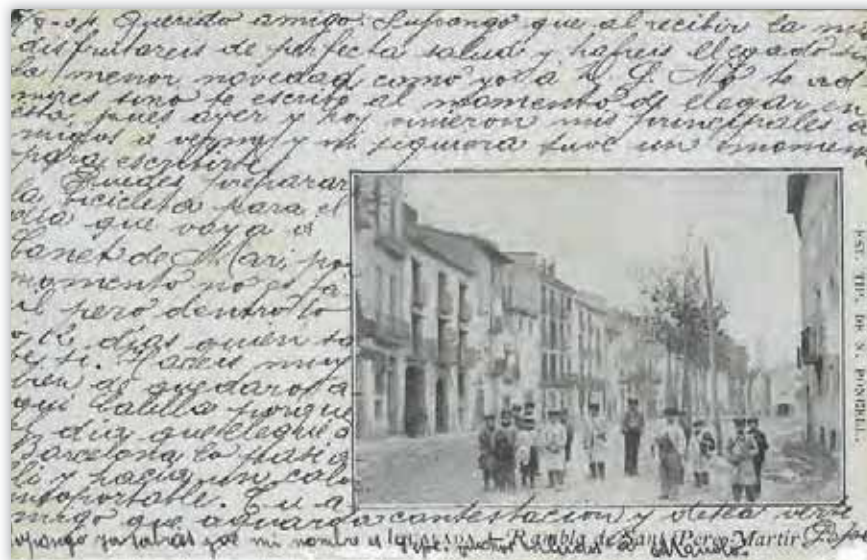 Querido amigo: Supongo que al recibir la
disfrutareis de perfecta salud y habreis llegado
la menor novedad como yo a
mires sino te escribi al momento de llegar en
esta, pues ayer y hoy vinieron mis principales a
migos a verme y ni siquiera tuve un momen
para escribirte
Puedes preparar
la bicicleta para el
dia que vaya a
Canet de Mar, por
momento no es fa
cil pero dentro 10
o 12 dias quien sa
be si. Haceis muy
bien de quedaros a
qui Calella porque
el dia que llegué a
Barcelona lo pasé a
lli y hacia un calor
insoportable. Tu a
migo que aguarda contestacion y desea verte
Pepe
Rambla de Sant Pere Martir
que mi nombre es
EST. TIP. DE N. PONCELL